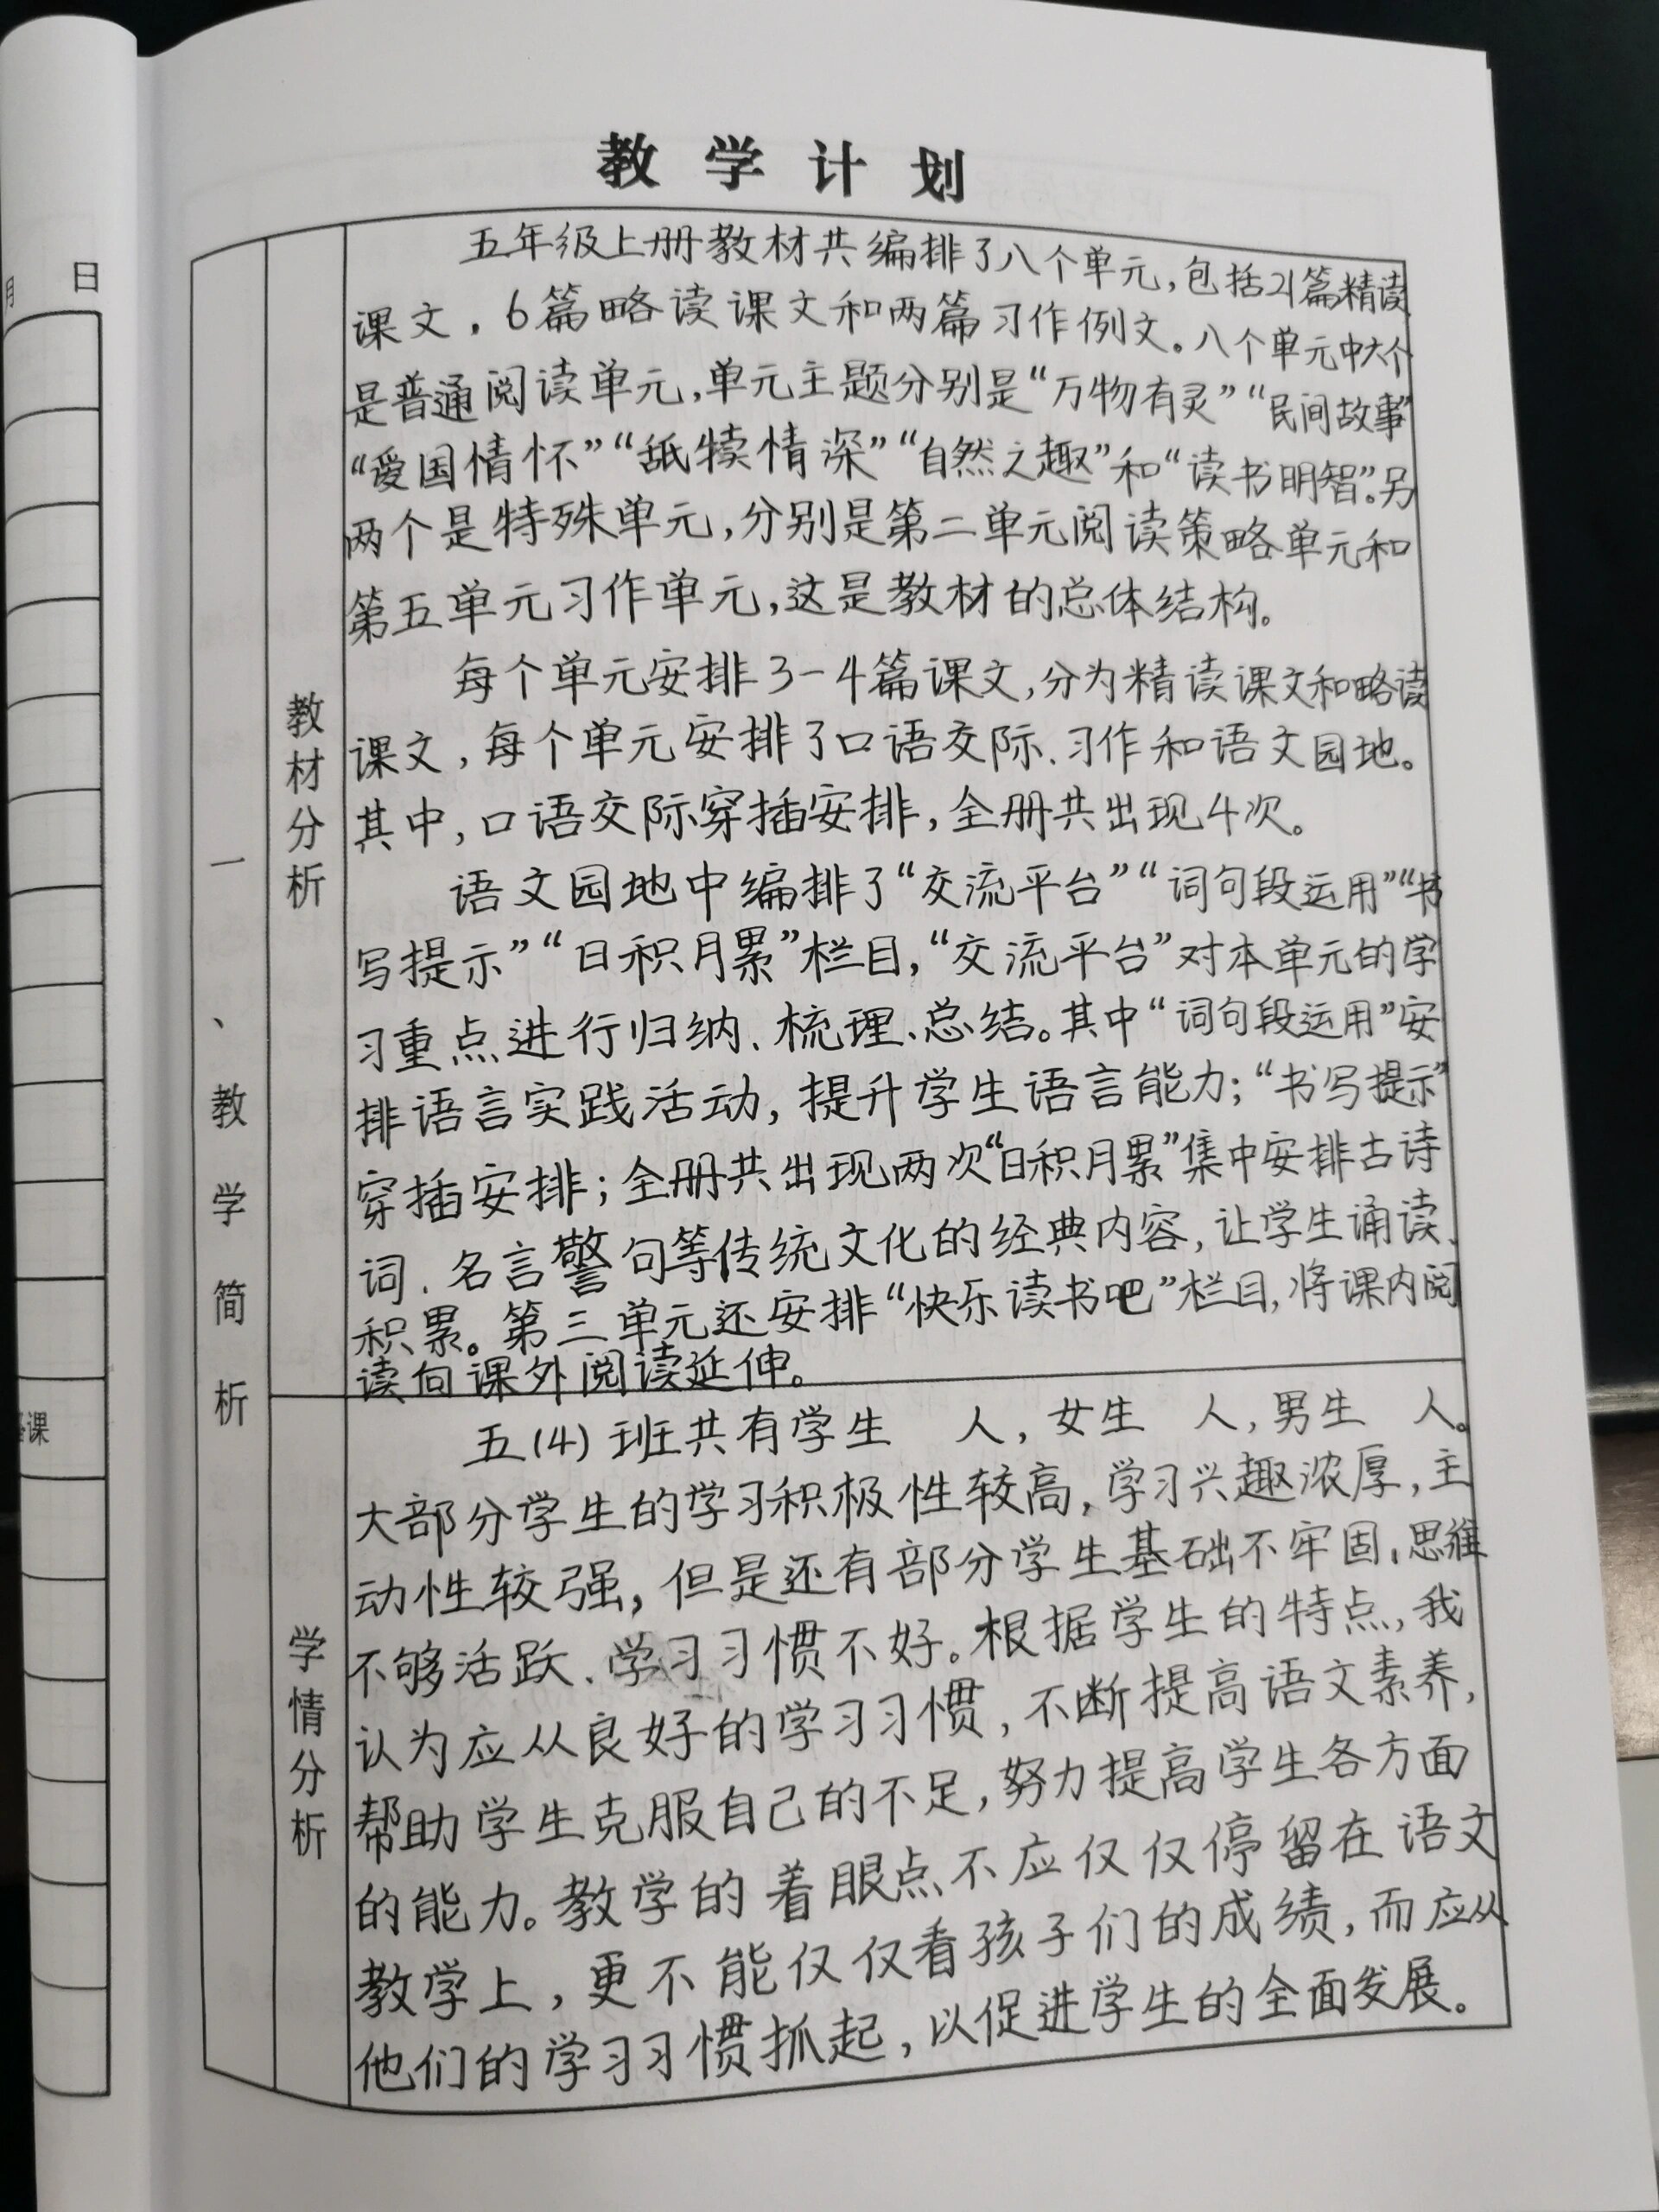 教学计划
月 日
课
一、教学简析
教材分析
五年级上册教材共编排了八个单元,包括21篇精读
课文,6篇略读课文和两篇习作例文。八个单元中六个
是普通阅读单元,单元主题分别是“万物有灵”“民间故事”
“爱国情怀”“舐犊情深”“自然之趣”和“读书明智”。另
两个是特殊单元,分别是第二单元阅读策略单元和
第五单元习作单元,这是教材的总体结构。
每个单元安排3-4篇课文,分为精读课文和略读
课文,每个单元安排了口语交际、习作和语文园地。
其中,口语交际穿插安排,全册共出现4次。
语文园地中编排了“交流平台”“词句段运用”“书
写提示”“日积月累”栏目,“交流平台”对本单元的学
习重点进行归纳、梳理、总结。其中“词句段运用”安
排语言实践活动,提升学生语言能力;“书写提示”
穿插安排;全册共出现两次“日积月累”集中安排古诗
词、名言警句等传统文化的经典内容,让学生诵读、
积累。第三单元还安排“快乐读书吧”栏目,将课内阅
读向课外阅读延伸。
学情分析
五(4)班共有学生 人,女生 人,男生 人。
大部分学生的学习积极性较高,学习兴趣浓厚,主
动性较强,但是还有部分学生基础不牢固、思维
不够活跃、学习习惯不好。根据学生的特点,我
认为应从良好的学习习惯,不断提高语文素养,
帮助学生克服自己的不足,努力提高学生各方面
的能力。教学的着眼点不应仅仅停留在语文
教学上,更不能仅仅看孩子们的成绩,而应从
他们的学习习惯抓起,以促进学生的全面发展。